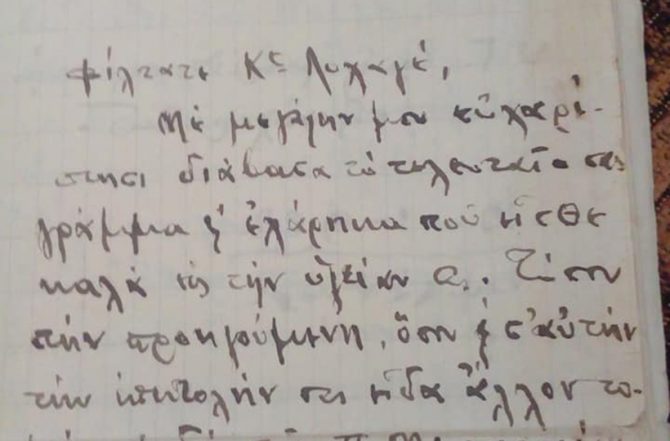 φίλτατε Κε Λοχαγέ,
Μέ μεγάλην μου εὐχαρί-
στησι διάβασα τό τελευταῖο σας
γράμμα κ' ἐχάρηκα ποῦ εἶσθε
καλά εἰς τήν ὑγείαν σας. Τόσον
στήν προηγούμενη, ὅσον κ' σ' αὐτήν
τήν ἐπιστολήν σας εἶδα ἄλλον το-